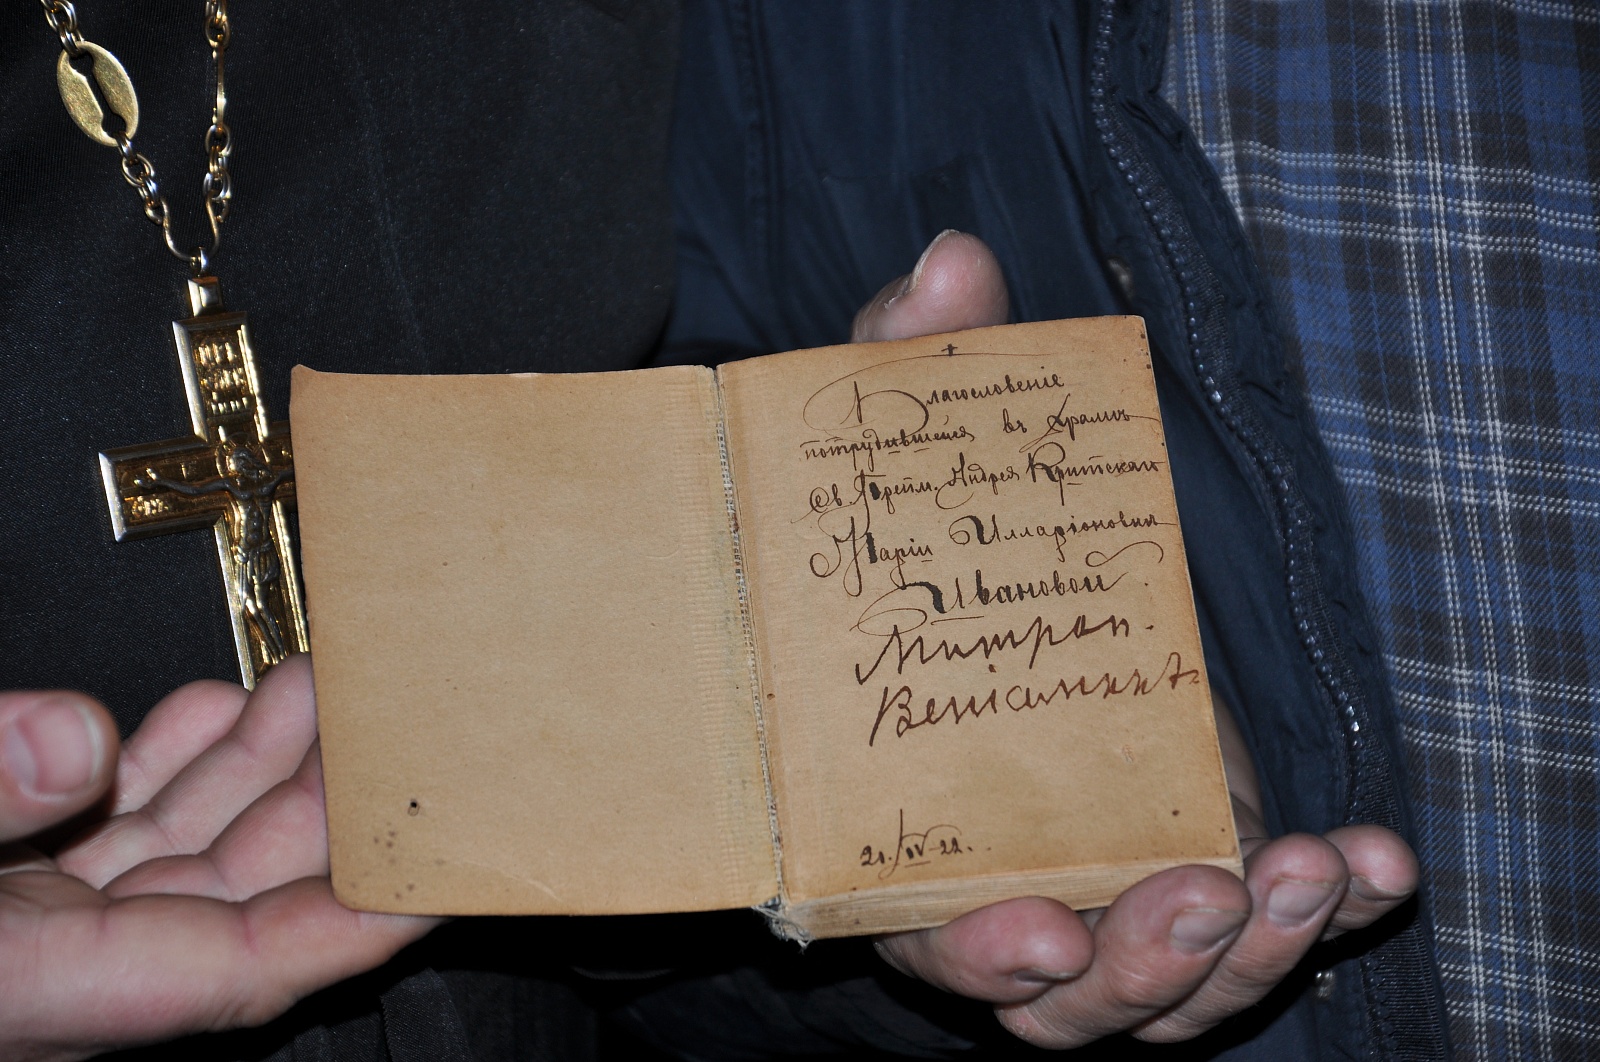 Благословенiе
потрудившейся въ храмѣ
Св. Препм. Андрея Критскаго
Марiи Илларiоновнѣ
Ивановой
Митроп.
Венiаминъ
21/IV 22.